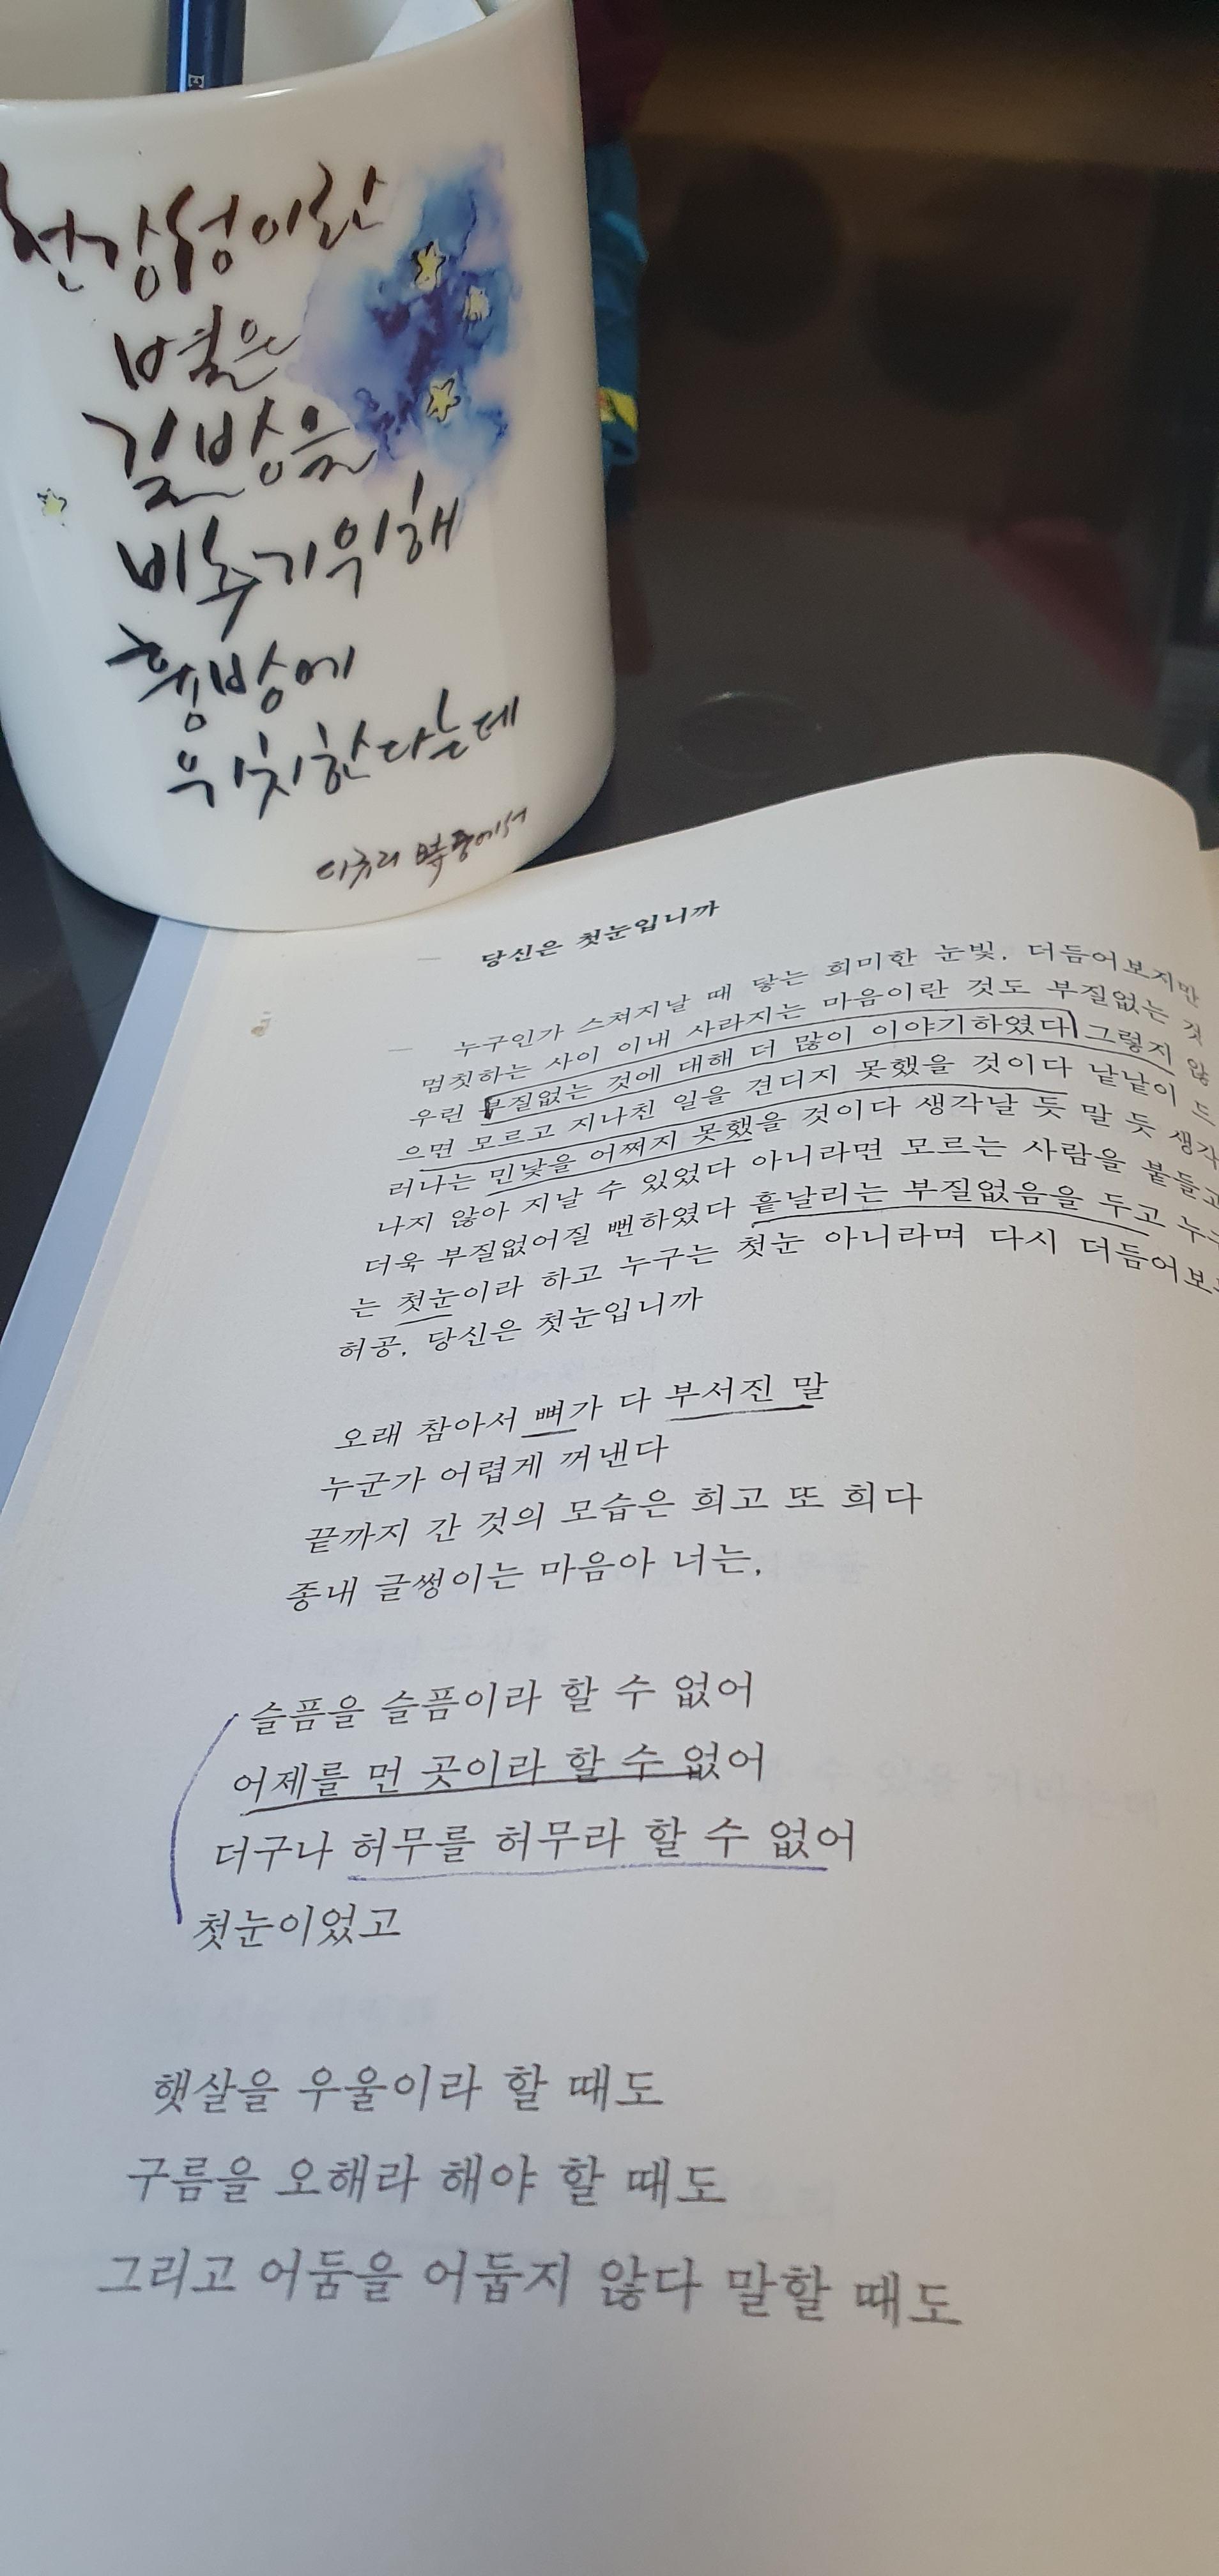 천강성이란
별은
길방을
비추기위해
흉방에
위치한다는데
이규리 詩 중에서
당신은 첫눈입니까
누구인가 스쳐지날 때 닿는 희미한 눈빛, 더듬어보지만
멈칫하는 사이 이내 사라지는 마음이란 것도 부질없는 것
우린 부질없는 것에 대해 더 많이 이야기하였다 그렇지 않
으면 모르고 지나친 일을 견디지 못했을 것이다 낱낱이 드
러나는 민낯을 어쩌지 못했을 것이다 생각날 듯 말 듯 생각
나지 않아 지날 수 있었다 아니라면 모르는 사람을 붙들고
더욱 부질없어질 뻔하였다 흩날리는 부질없음을 두고 누구
는 첫눈이라 하고 누구는 첫눈 아니라며 다시 더듬어보
허공, 당신은 첫눈입니까
오래 참아서 뼈가 다 부서진 말
누군가 어렵게 꺼낸다
끝까지 간 것의 모습은 희고 또 희다
종내 글썽이는 마음아 너는,
슬픔을 슬픔이라 할 수 없어
어제를 먼 곳이라 할 수 없어
더구나 허무를 허무라 할 수 없어
첫눈이었고
햇살을 우울이라 할 때도
구름을 오해라 해야 할 때도
그리고 어둠을 어둡지 않다 말할 때도